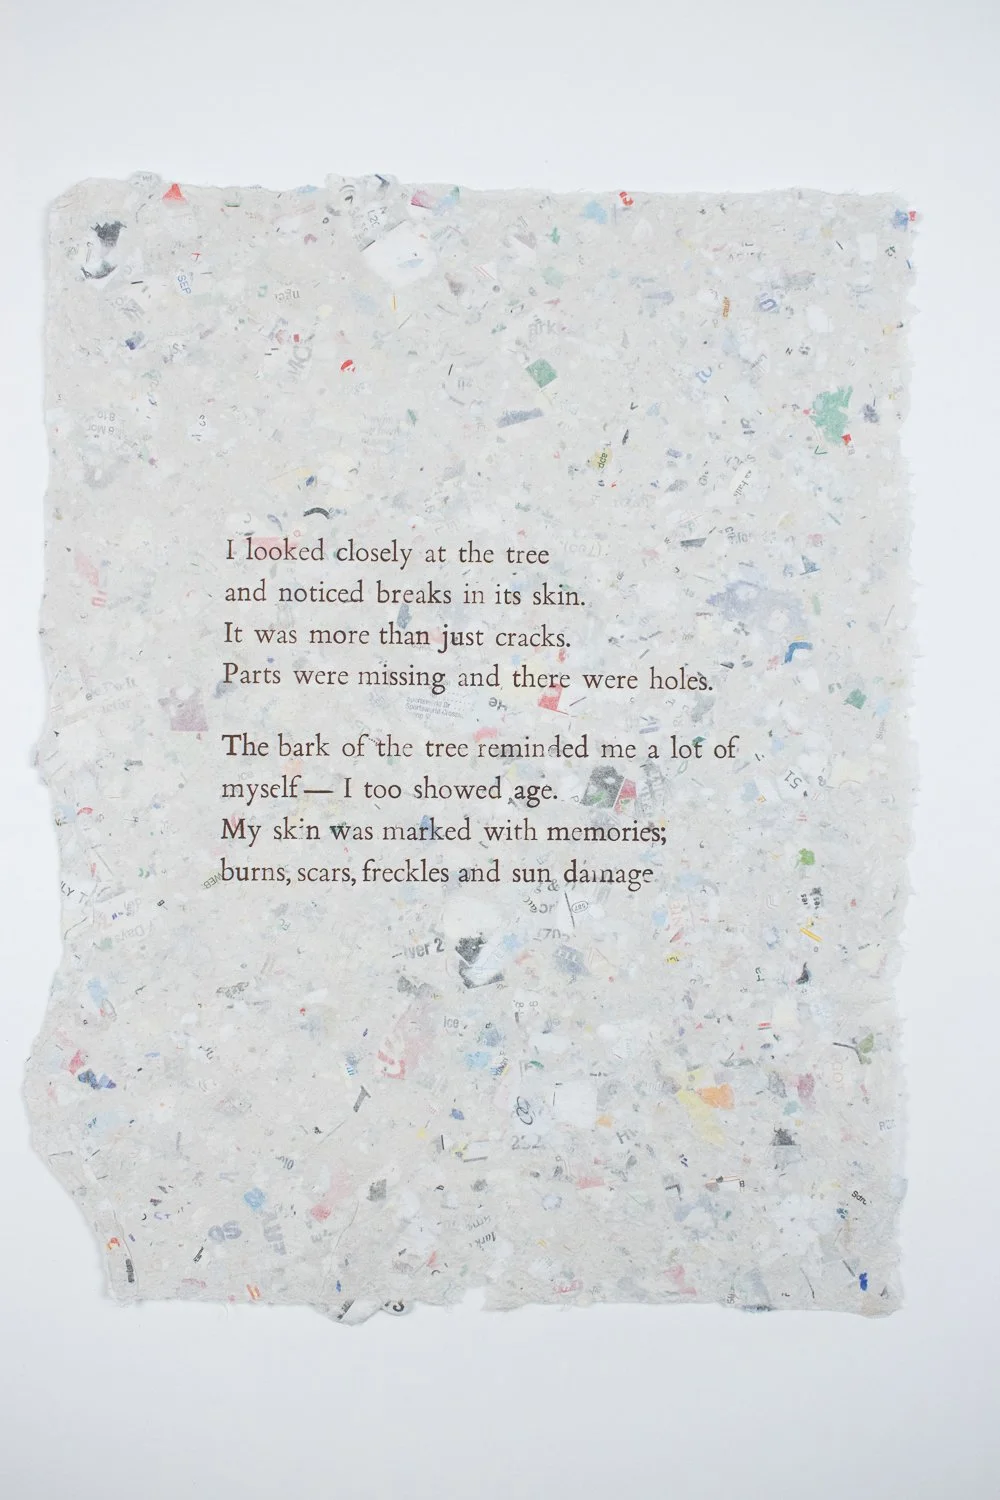 I looked closely at the tree
and noticed breaks in its skin.
It was more than just cracks.
Parts were missing and there were holes.
The bark of the tree reminded me a lot of
myself — I too showed age.
My skin was marked with memories;
burns, scars, freckles and sun damage